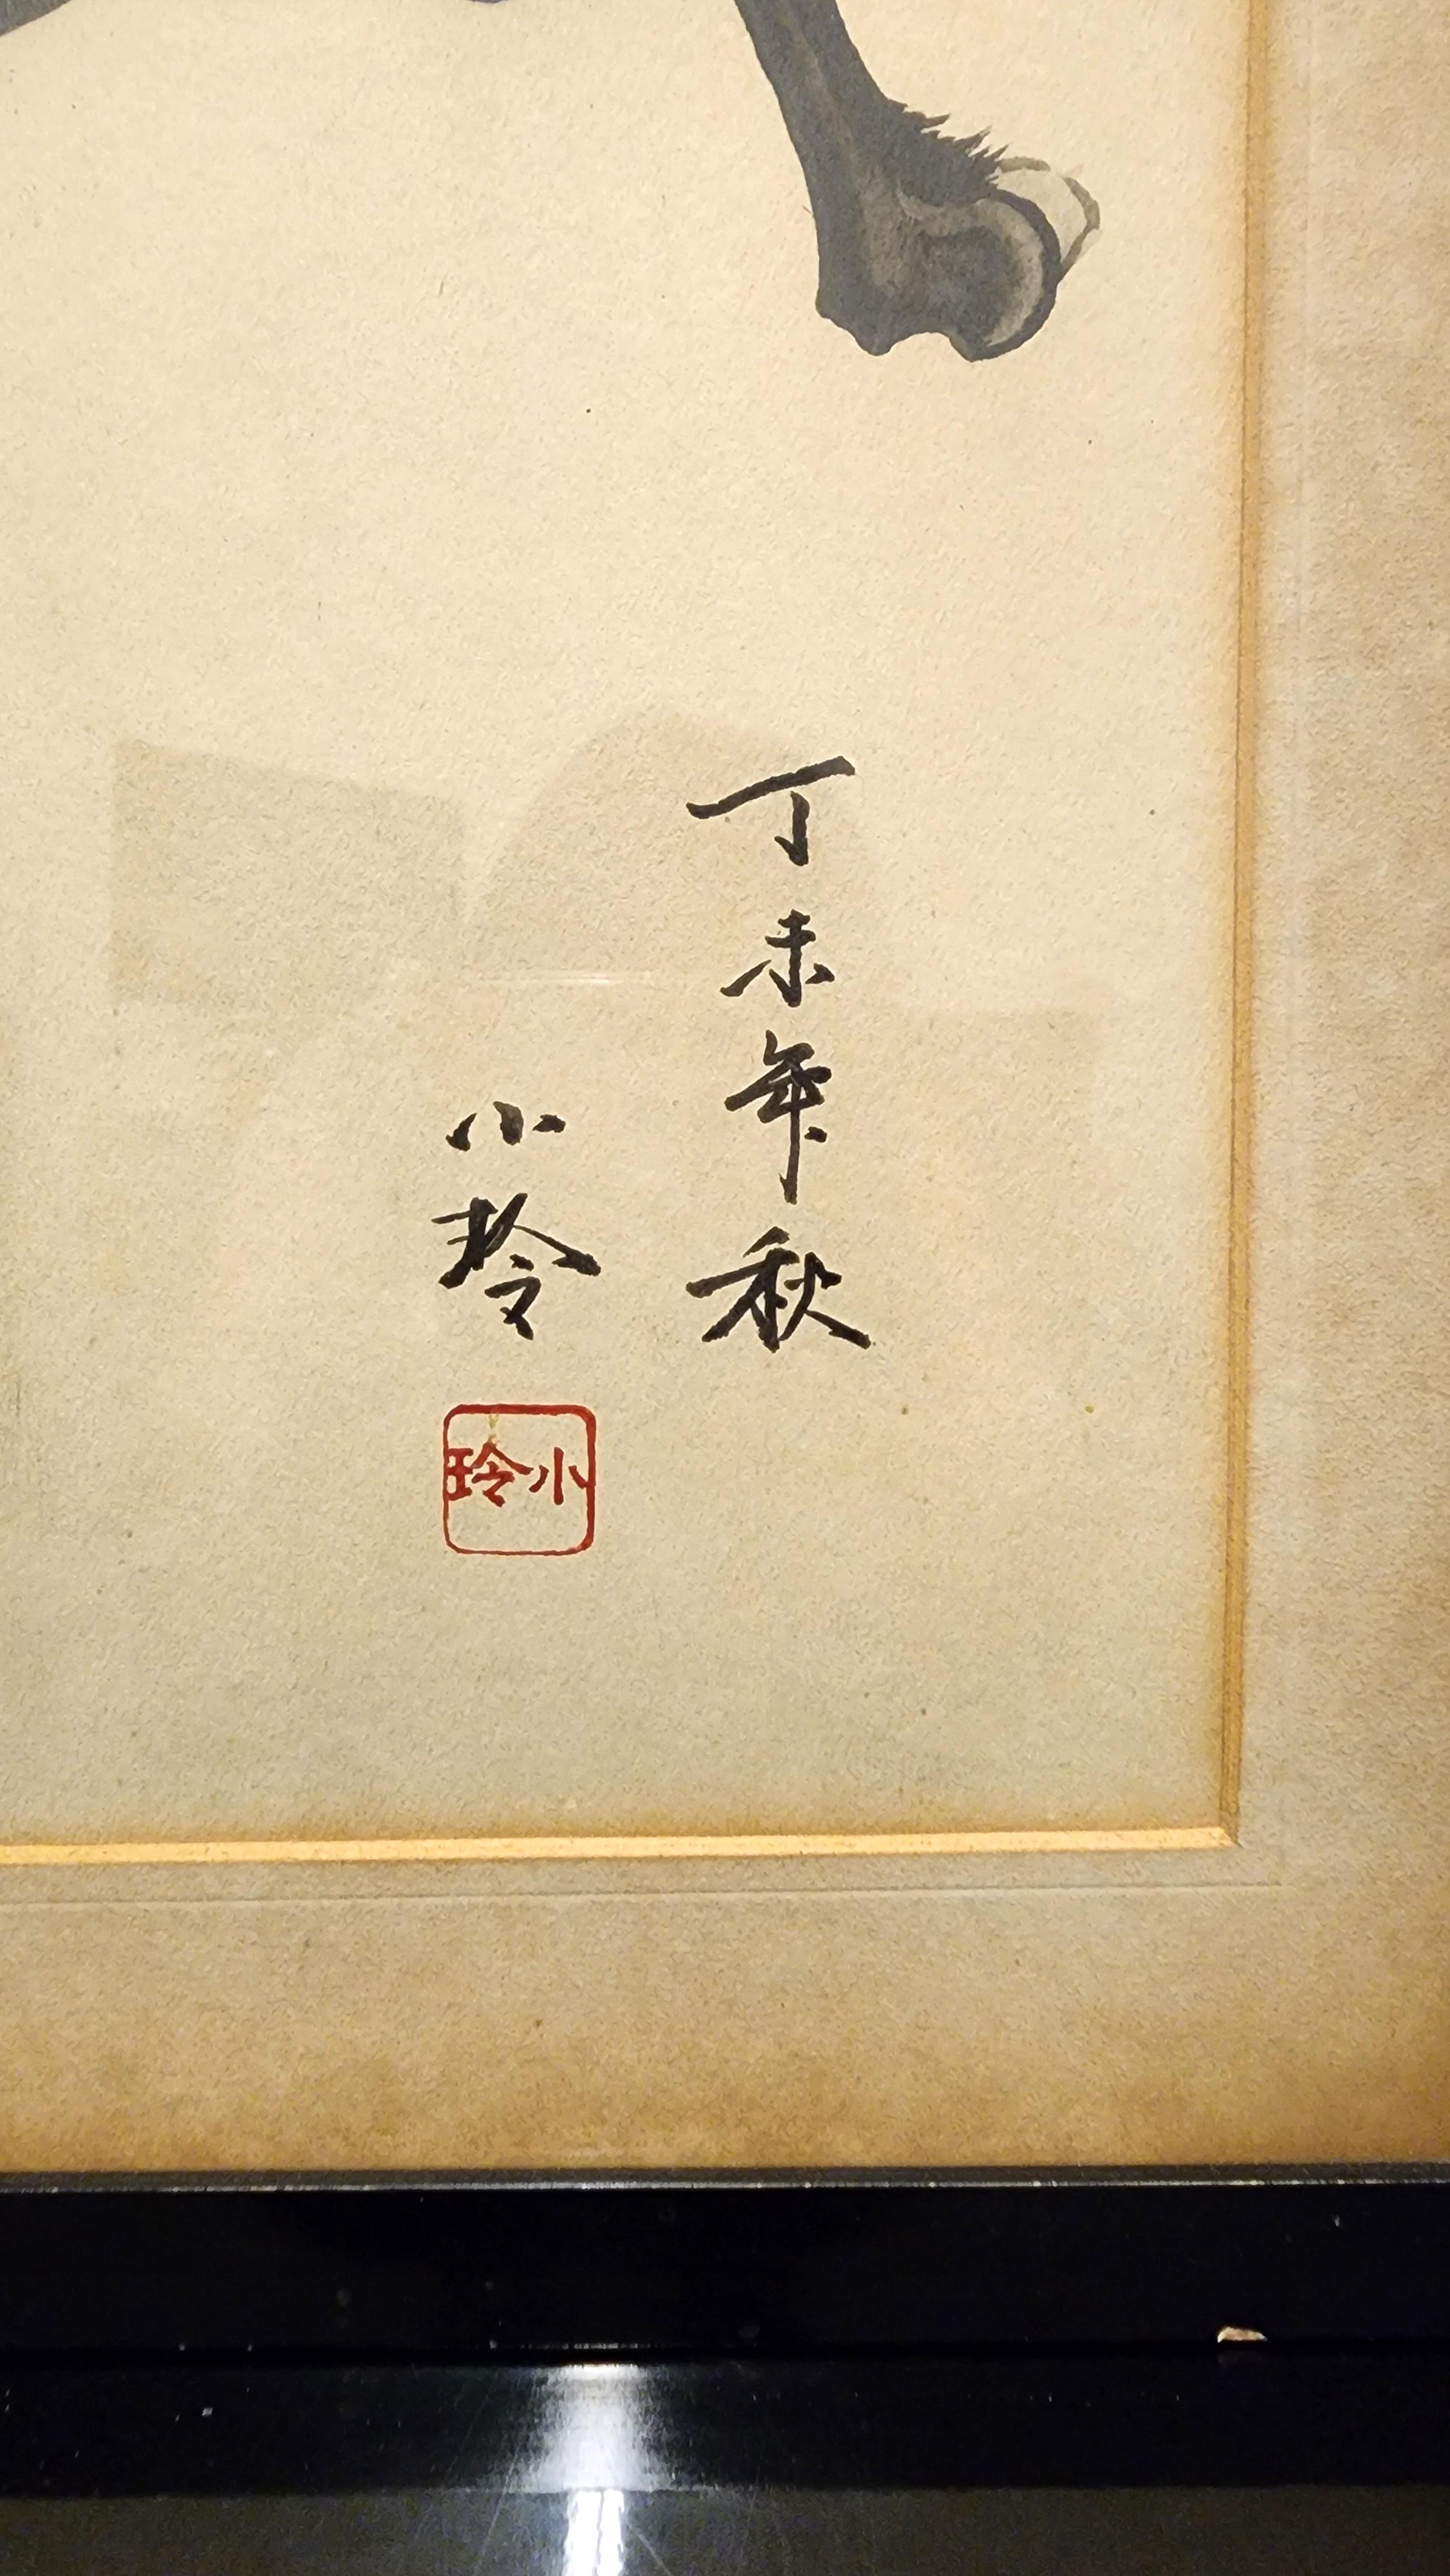 丁未年秋
小玲
小玲